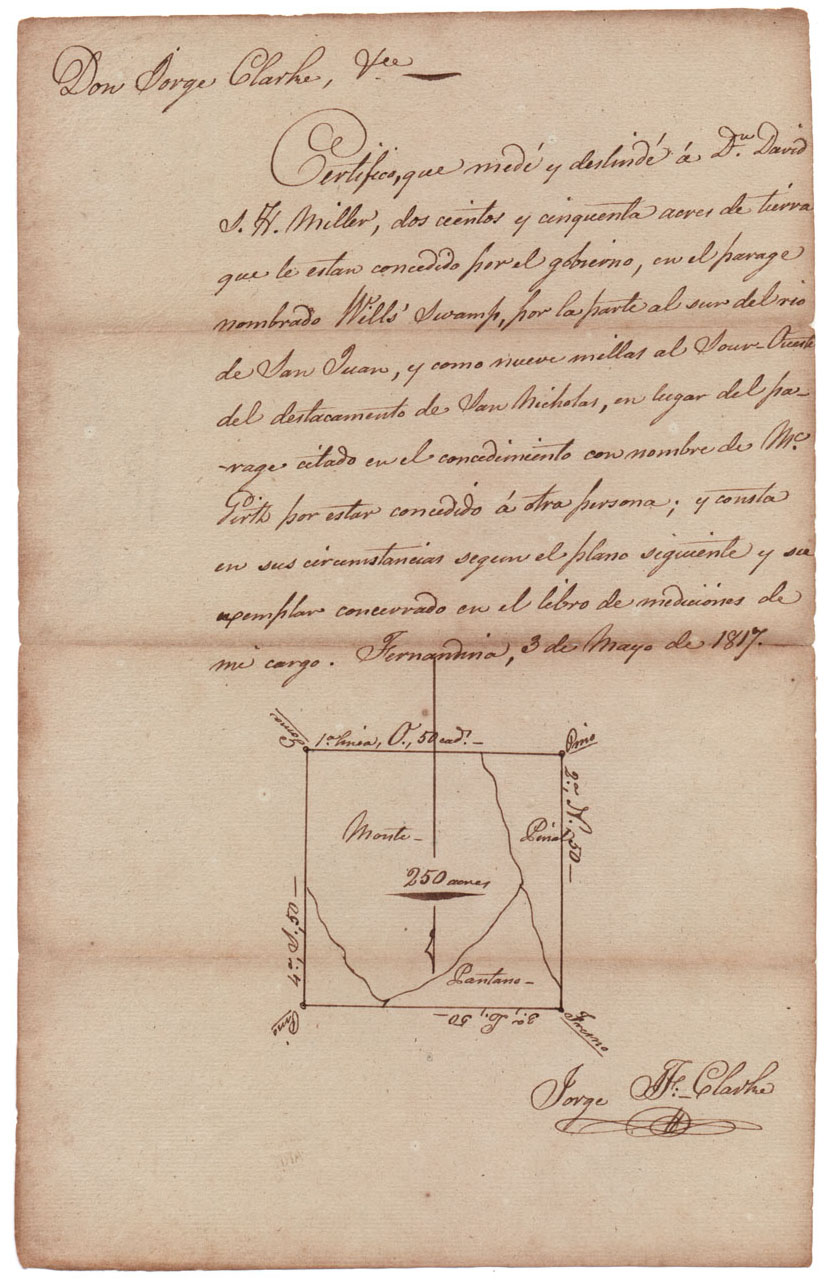 Don Jorge Clarke, &ce
Certifico, que medé y deslindé á Dn. David
S. H. Miller, dos cientos y cinquenta acres de tierra
que le estan concedido por el gobierno, en el parage
nombrado Wills' Swamp, por la parte al sur del rio
de San Juan, y como nueve millas al Sour-Oueste
del destacamento de San Nicholas, en lugar del pa-
-rage citado en el concedimiento con nombre de Mc.
Girth por estar concedido á otra persona; y consta
en sus circumstancias segun el plano siguiente y su
exemplar concerrado en el libro de mediciónes de
mi cargo. Fernandina, 3 de Mayo de 1817.
1a. linea, O., 50 cads.
Pino
2a., N. 50
Monte
Pinal
250 acres
4a., S., 50
Pantano
Pino
3a., E., 50
Fresno
Jorge J. F. Clarke